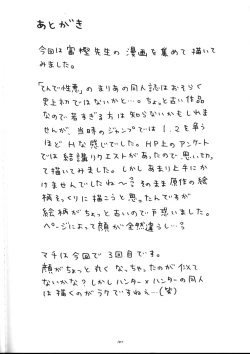 あとがき
今回は冨樫先生の漫画を集めて描いて
みました。
「てんで性悪」のまりあの同人誌はおそらく
史上初ではないかと…。ちょっと古い作品
なので若すぎる方は知らないかもしれま
せんが、当時のジャンプでは1、2を争う
ほどHな感じでした。HP上のアンケート
では結構リクエストがあったので、思い切っ
て描いてみました。しかしあまり上手にか
けませんでしたね〜?そのまま原作の絵
柄そっくりに描こうと思ったんですが
絵柄がちょっと古いので戸惑いました。
ページによって顔が全然違うし…?
マチは今回で3回目です。
顔がちょっと丸くなっちゃったのが似て
ないかな?しかしハンター×ハンターの同人
は描くのがラクですねえ…(笑)